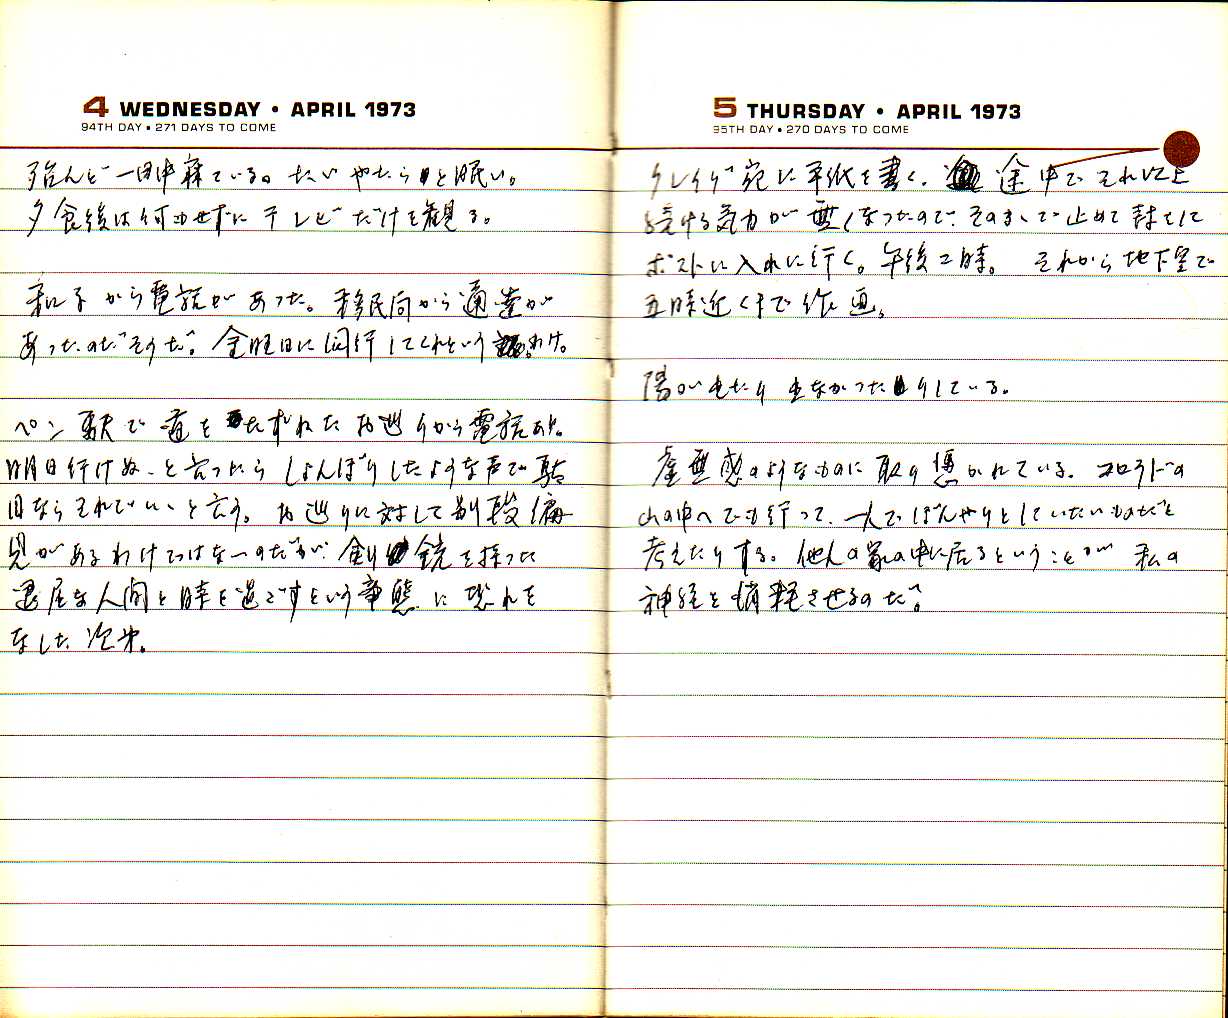 4 WEDNESDAY • APRIL 1973
94TH DAY • 271 DAYS TO COME
殆んど一日中寝ている。ただやたらと眠い。
夕食後は何もせずにテレビだけを観る。
和子から電話があった。移民局から通達が
あったのだそうだ。金曜日に同行してくれというわけ。
ペン駅で道をたずねたお巡りから電話あり。
明日行けぬ、と言ったらしょんぼりしたような声で駄
目ならそれでいいと言う。お巡りに対して別段偏
見があるわけではないのだが、銃を採った
退屈な人間と時を過ごすという事態に恐れを
なした次第。
5 THURSDAY • APRIL 1973
95TH DAY • 270 DAYS TO COME
クレイグ宛に手紙を書く。途中でそれ以上
続ける気力が無くなったので、そのままで止めて封をして
ポストに入れに行く。午後二時。それから地下室で
五時近くまで作画。
陽が出たり出なかったりしている。
虚無感のようなものに取り憑かれている。コロラドの
山の中へでも行って、一人でぼんやりとしていたいものだと
考えたりする。他人の家の中に居るということが私の
神経を消耗させるのだ。